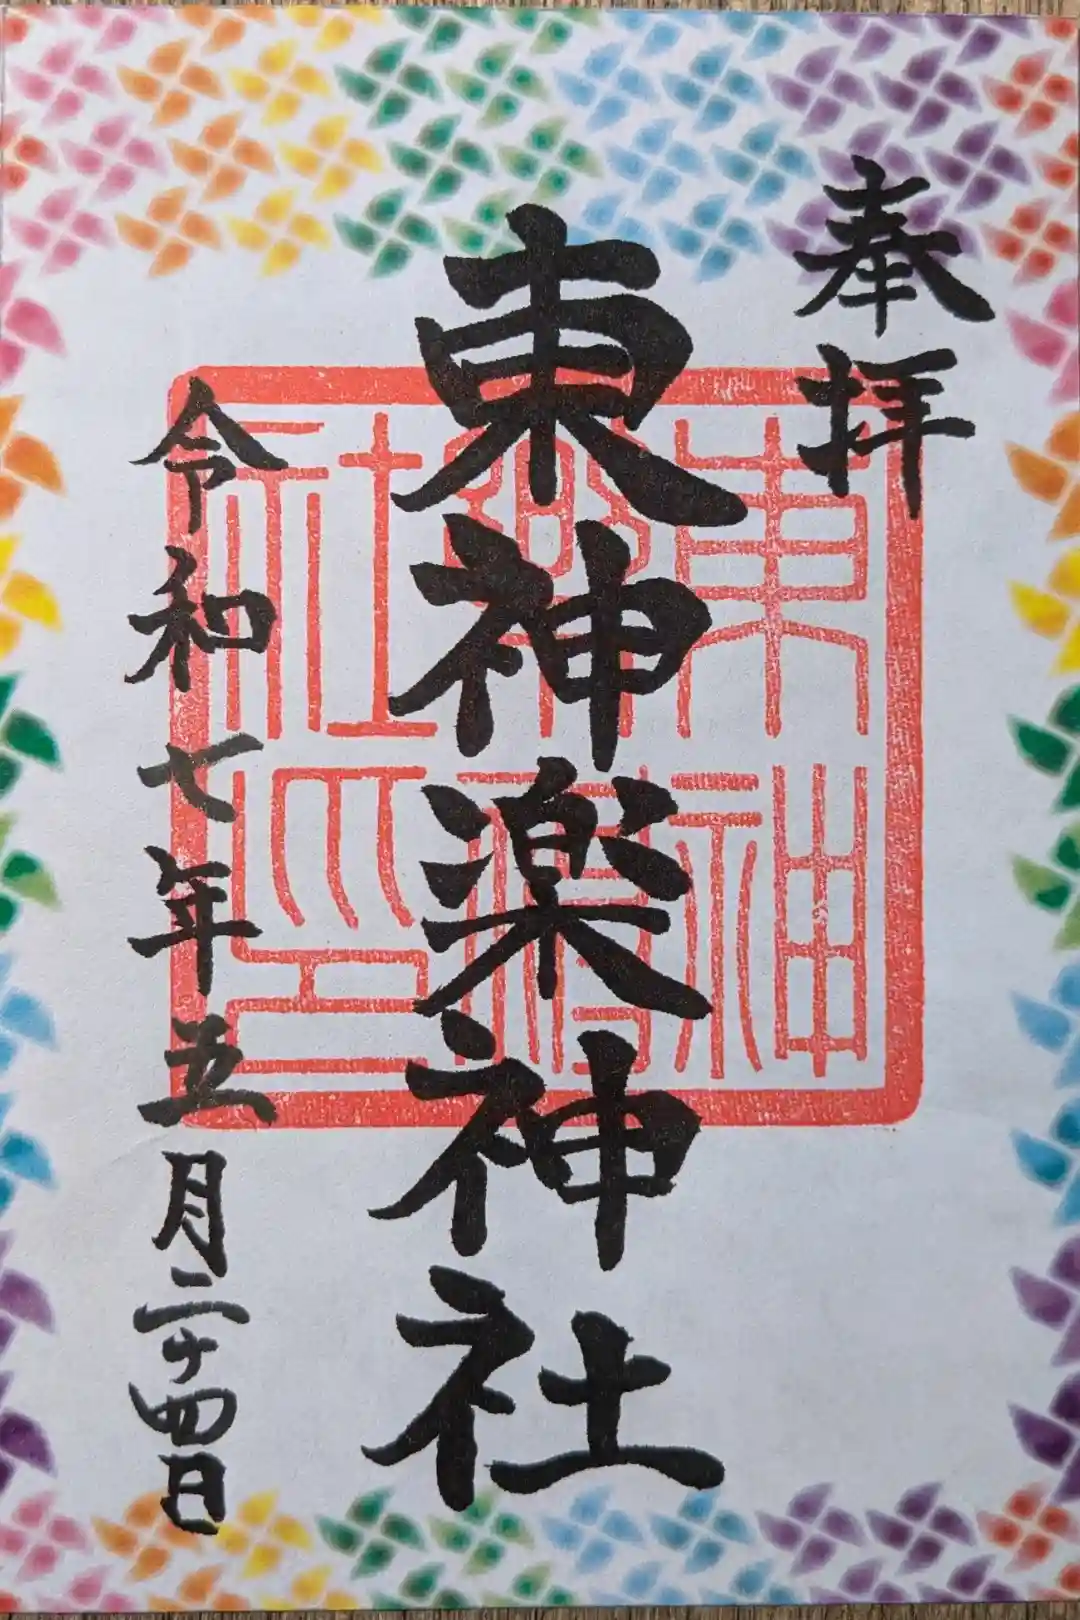 奉拝
東神楽神社
東神樂神社印
令和七年五月二十四日